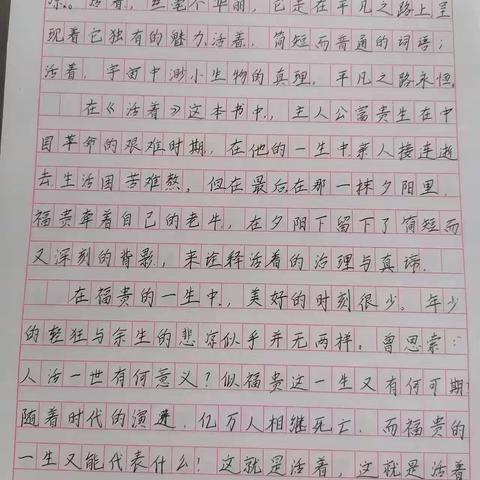 活着，丝毫不华丽，它是在平凡之路上呈
现着它独有的魅力。活着，简短而普通的词语；
活着，宇宙中渺小生物的真理，平凡之路永恒。
在《活着》这本书中，主人公富贵生在中
国革命的艰难时期，在他的一生中亲人接连逝
去，生活困苦难熬，但在最后在那一抹夕阳里，
福贵牵着自己的老牛，在夕阳下留下了简短而
又深刻的背影，来诠释活着的治理与真谛。
在福贵的一生中，美好的时刻很少。年少
的轻狂与余生的悲凉似乎并无两样。曾思索：
人活一世有何意义？似福贵这一生又有何可期？
随着时代的演进，亿万人相继死亡，而福贵的
一生又能代表什么！这就是活着，这就是活着